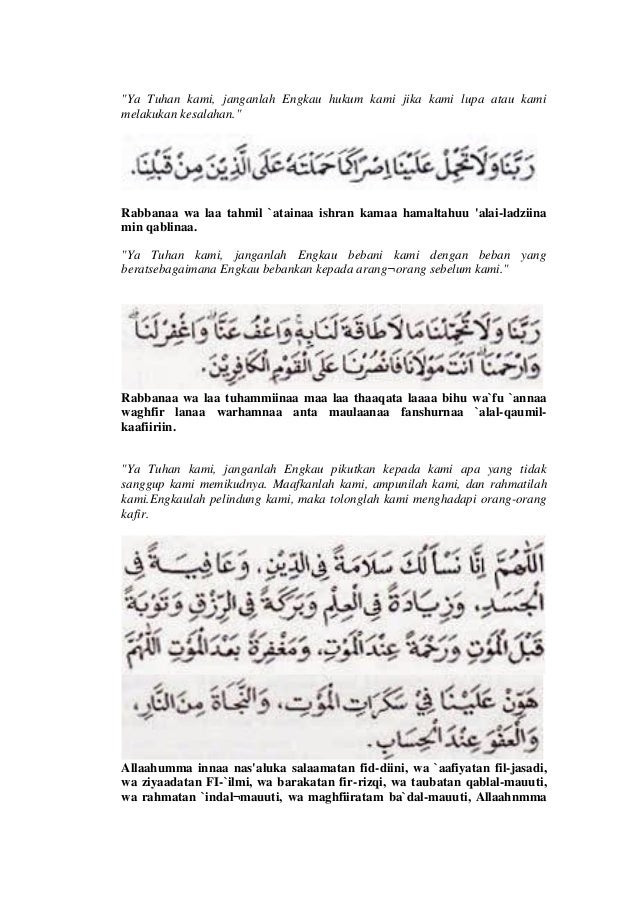 "Ya Tuhan kami, janganlah Engkau hukum kami jika kami lupa atau kami
melakukan kesalahan."
رَبَّنَا وَلَا تَحْمِلْ عَلَيْنَا إِصْرًا كَمَا حَمَلْتَهُ عَلَى الَّذِيْنَ مِنْ قَبْلِنَا.
Rabbanaa wa laa tahmil `atainaa ishran kamaa hamaltahuu 'alai-ladziina
min qablinaa.
"Ya Tuhan kami, janganlah Engkau bebani kami dengan beban yang
beratsebagaimana Engkau bebankan kepada arang¬orang sebelum kami."
رَبَّنَا وَلَا تُحَمِّلْنَا مَا لَا طَاقَةَ لَنَا بِهِ ۚ وَاعْفُ عَنَّا ۗ وَاغْفِرْ لَنَا ۗ
وَارْحَمْنَا ۗ أَنْتَ مَوْلَانَا فَانْصُرْنَا عَلَى الْقَوْمِ الْكَافِرِيْنَ.
Rabbanaa wa laa tuhammiinaa maa laa thaaqata laaaa bihu wa`fu `annaa
waghfir lanaa warhamnaa anta maulaanaa fanshurnaa `alal-qaumil-
kaafiiriin.
"Ya Tuhan kami, janganlah Engkau pikutkan kepada kami apa yang tidak
sanggup kami memikudnya. Maafkanlah kami, ampunilah kami, dan rahmatilah
kami.Engkaulah pelindung kami, maka tolonglah kami menghadapi orang-orang
kafir.
اَللّٰهُمَّ إِنَّا نَسْأَلُكَ سَلَامَةً فِي الدِّيْنِ، وَعَافِيَةً فِي
الْجَسَدِ، وَزِيَادَةً فِي الْعِلْمِ وَبَرَكَةً فِي الرِّزْقِ وَتَوْبَةً
قَبْلَ الْمَوْتِ وَرَحْمَةً عِنْدَ الْمَوْتِ، وَمَغْفِرَةً بَعْدَ الْمَوْتِ اَللّٰهُمَّ
هَوِّنْ عَلَيْنَا فِيْ سَكَرَاتِ الْمَوْتِ، وَالنَّجَاةَ مِنَ النَّارِ،
وَالْعَفْوَ عِنْدَ الْحِسَابِ.
Allaahumma innaa nas'aluka salaamatan fid-diini, wa `aafiyatan fil-jasadi,
wa ziyaadatan FI-`ilmi, wa barakatan fir-rizqi, wa taubatan qablal-mauuti,
wa rahmatan `indal¬mauuti, wa maghfiiratam ba`dal-mauuti, Allaahnmma